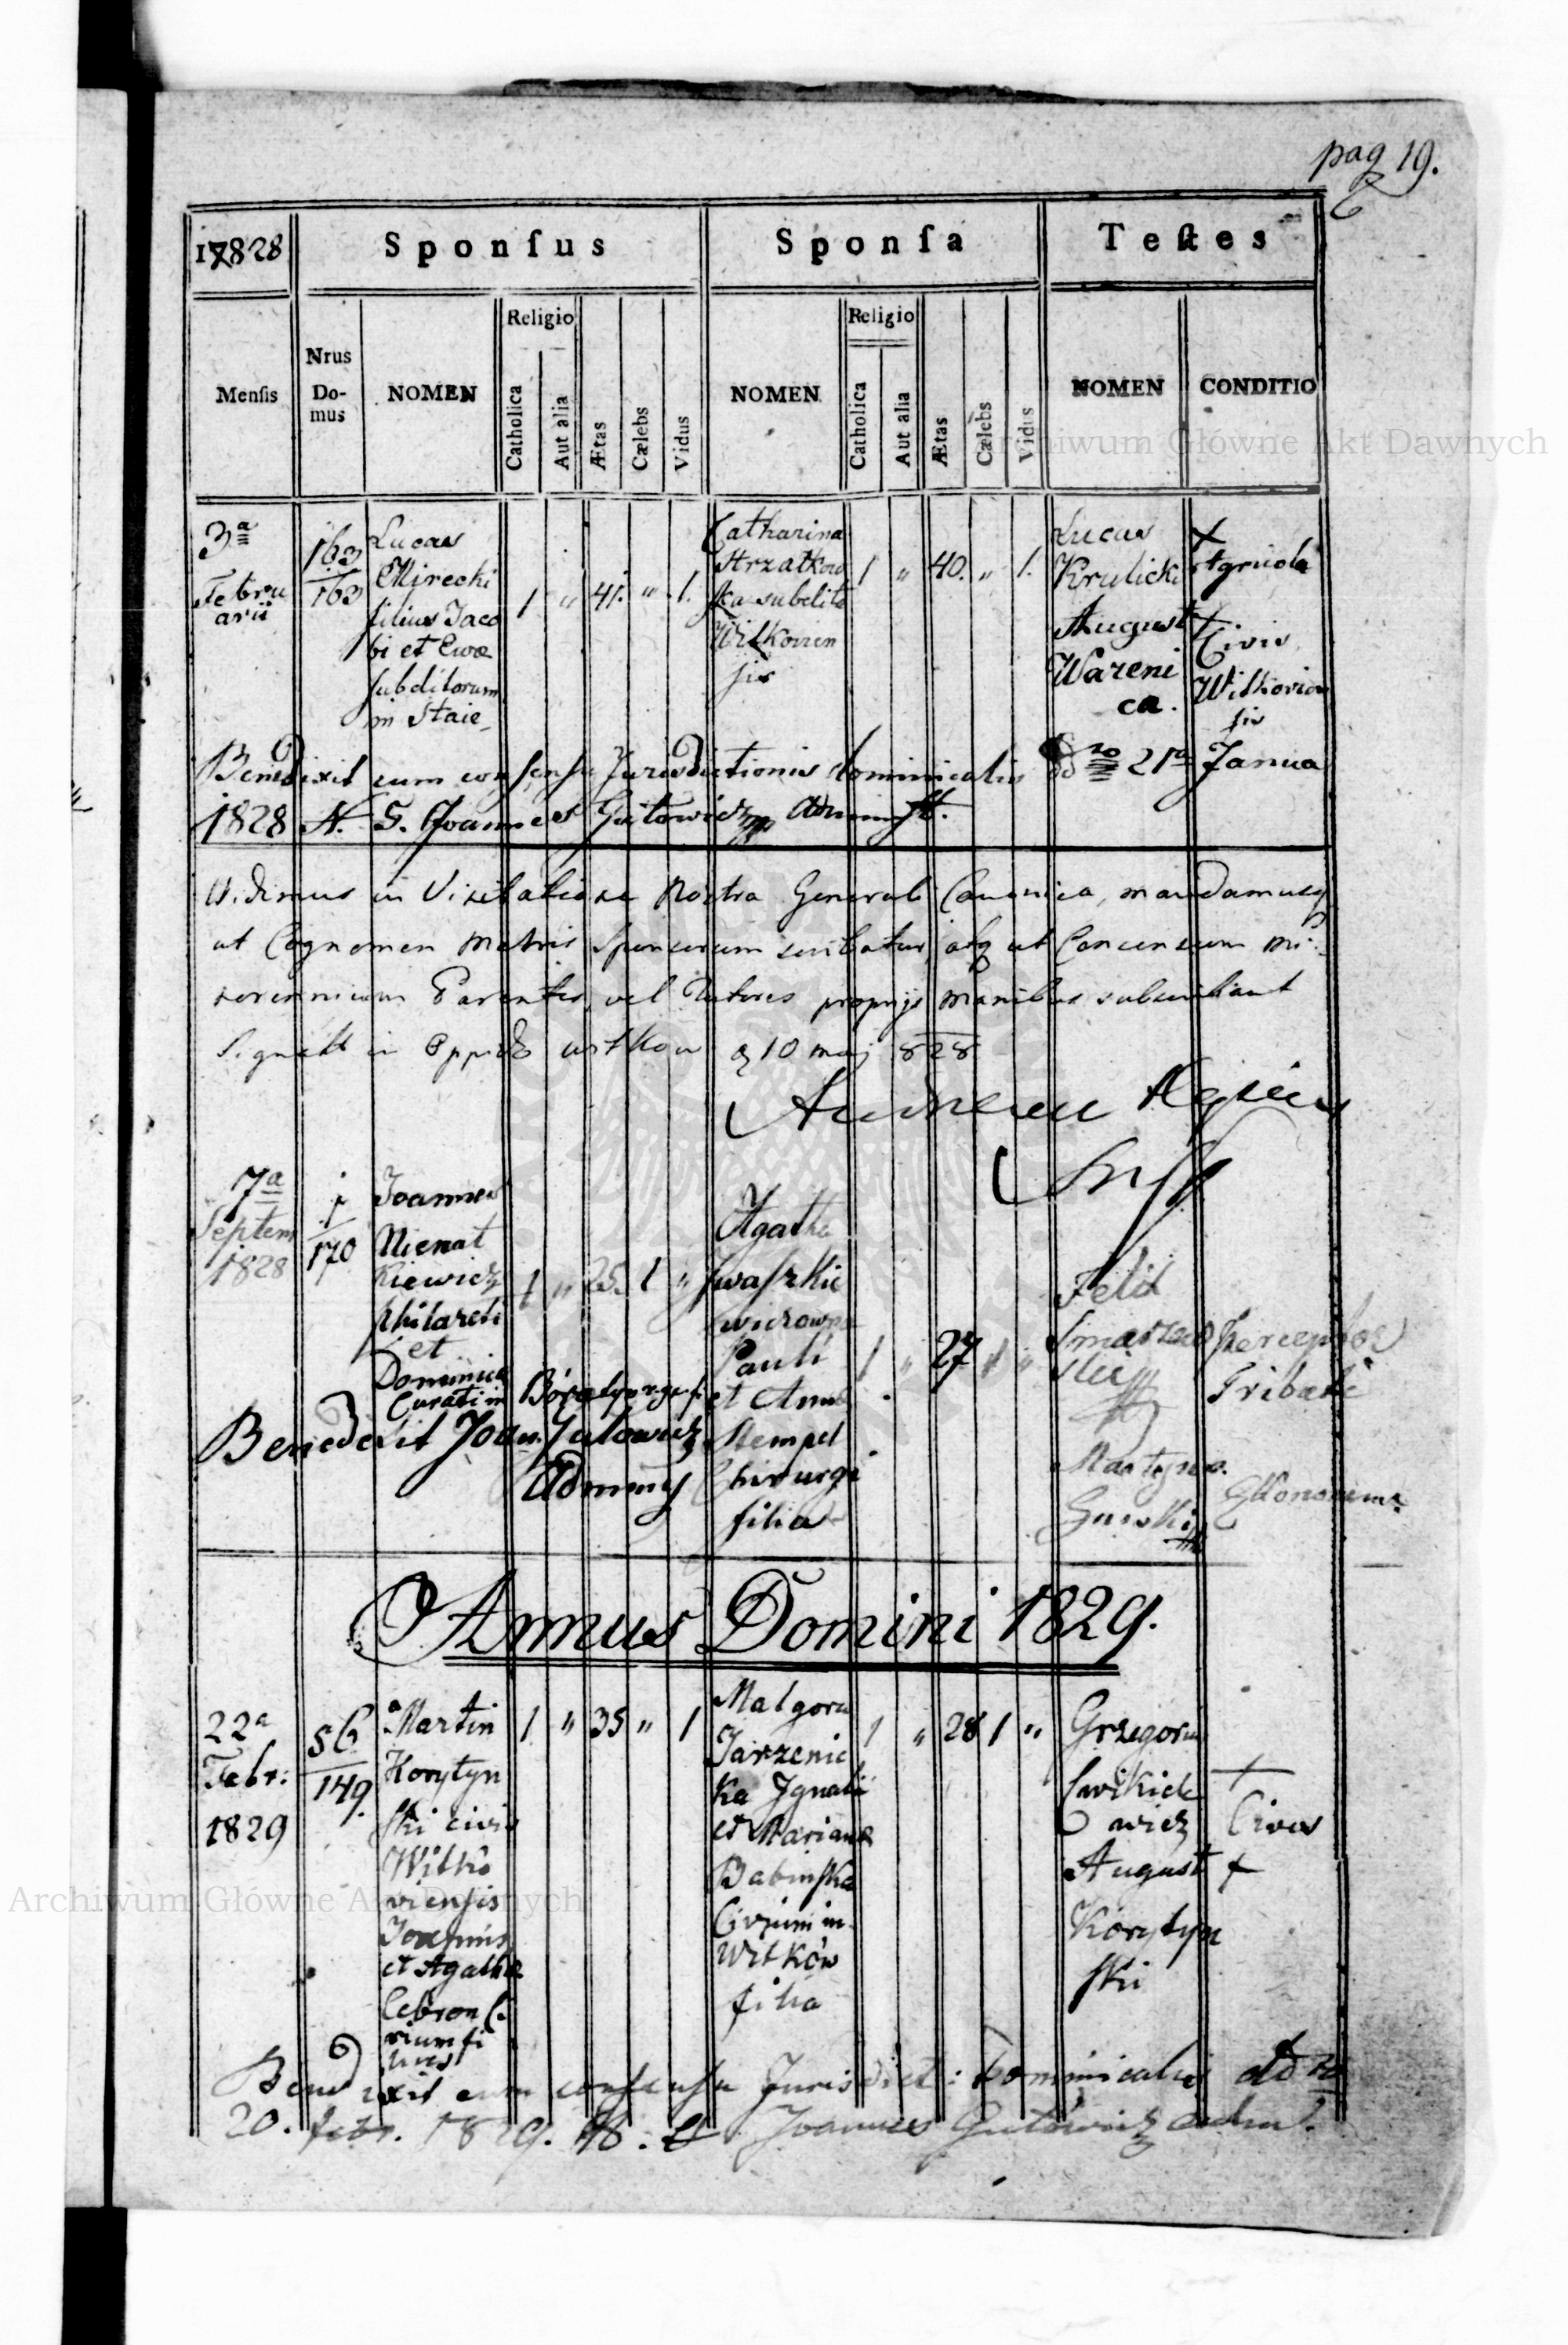 pag 19.
17828
Sponſus
Sponſa
Teſtes
Menſis
Nrus Domus
NOMEN
Religio
Catholica
Aut alia
Ætas
Cælebs
Vidus
NOMEN
Religio
Catholica
Aut alia
Ætas
Cælebs
Vidus
NOMEN
CONDITIO
Archiwum Główne Akt Dawnych
3ª
Febru
arii
163
163
Lucas
Mirecki
filius Jaco
bi et Ewæ
subditorum
in Staie
1 " 41. " 1.
Catharina
Strzałkow
ska subdita
Witkovien
sis
1 " 40. " 1.
Lucas
Krulicki
August
Wareni
ca.
+
Agricola
+
Civis
Witkovien
sis
Benedixit cum consensu Jurisdictionis dominicalis dd º 21ª Janua
1828 N. 5. Joannes Gutowicz Adminst.
Vidimus in Visitatione Nostra Generali Canonica, mandamusq
ut Cognomen Matris Sponsorum scribatur, atq ut Consensum Mi:
norennium Parentes, vel Tutores proprijs manibus subscribant
Signatt in Oppido Witkow d 10 Maj 828
7ª
Septem
1828
170
Joannes
Nienat
kiewicz
Philareti
et
Dominica
Curati in
1 " 25. 1 "
Agatha
Iwaszkie
wiczowna
Pauli
et Anna
Stempel
Chirurgi
filia
1 " 27 1 "
Felix
Smarzew
ski
Perceptor
Martynus
Gurski
Benedixit Joan. Gutowicz
Admin
Annus Domini 1829.
22ª
Febr:
1829
56
149.
Martin
Korytyn
ski civis
Witko
viensis
et Agatha
1 " 35 " 1
Malgoru
Jarzenic
ka Ignatii
et Mariana
Babinska
Civium in
Witków
filia
1 " 28 1 "
Grzegorz
Cwikiele
wicz
August
Koryty
ski
+
Cives
+
Archiwum Główne Akt Dawnych
Benedixit cum consensu Jurisdict: Dominicalis dd º
20. febr. 1829. N. Joannes Gutowicz adm.